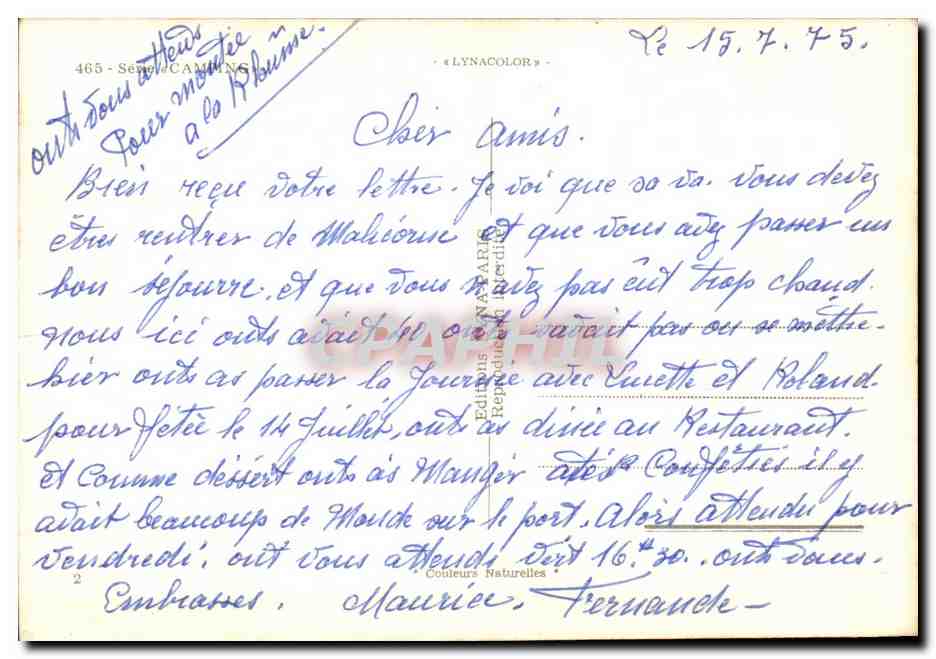 465 - Série «CAMPING»
- «LYNACOLOR» -
Le 15.7.75.
onts vous attends
Pour montée
a la Rhune.
Cher amis.
Bien reçu votre lettre. Je voi que sa va. vous devez
êtres rentrer de Malicorne et que vous avez passer un
bon séjourre. et que vous n'avez pas eût trop chaud.
nous ici onts avait 40 onts savait pas ou se mettre.
hier onts as passer la Journée avec Lucette et Roland.
pour fêtée le 14 Juillet, onts as dinée au Restaurant.
et Comme dessert onts as Manger des Confèties il y
avait beaucoup de Monde sur le port. Alors attendu pour
vendredi. ont vous attends vert 16H30. onts vous.
Embrasses. Maurice. Fernande
Editions LYNA-PARIS
Reproduction interdite
CPAPHIL
2
" Couleurs Naturelles "